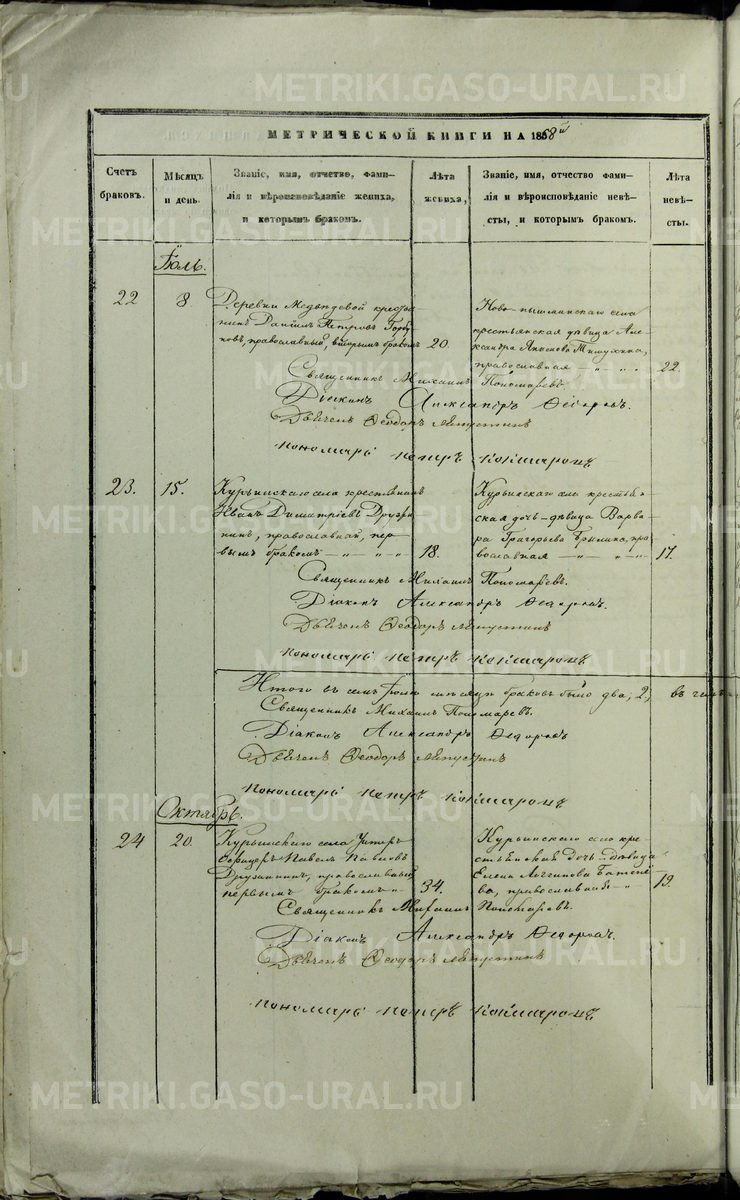 METRIKI.GASO-URAL.RU
МЕТРИЧЕСКОЙ КНИГИ НА 1858й
Счетъ браковъ.
Мѣсяцъ и день.
Званіе, имя, отчество, фамилія и вѣроисповѣданіе жениха, и которымъ бракомъ.
Лѣта жениха,
Званіе, имя, отчество фамилія и вѣроисповѣданіе невѣсты, и которымъ бракомъ.
Лѣта невѣсты.
Іюль.
22
8
Деревни Медвѣдевой крестья-
нинъ Даніилъ Петровъ Горбу-
новъ, православный, вторымъ бракомъ
20.
Ново-пышминскаго села
крестьянская дѣвица Але-
ксандра
православная
22.
Священникъ Михаилъ Пономаревъ.
Діаконъ Александръ Ѳедоровъ.
Дьячекъ Ѳеодоръ Ляпустинъ
Пономарь Петръ Кокшаровъ
23.
15.
Курьинскаго села крестьянинъ
Иванъ Димитріевъ Дружи-
нинъ, православный, пер-
вымъ бракомъ
18.
Курьинскаго села крестьян-
ская дочь-дѣвица Варва-
ра Григорьева пра-
вославная
17.
Священникъ Михаилъ Пономаревъ.
Діаконъ Александръ Ѳедоровъ.
Дьячекъ Ѳеодоръ Ляпустинъ
Пономарь Петръ Кокшаровъ
Итого въ семъ Іюлѣ мѣсяцѣ браковъ было два, 2; въ чемъ
Священникъ Михаилъ Пономаревъ.
Діаконъ Александръ Ѳедоровъ
Дьячекъ Ѳеодоръ Ляпустинъ
Пономарь Петръ Кокшаровъ
Октябрь.
24
20.
Курьинскаго села Унтеръ
Офицеръ Павелъ Павловъ
Дружининъ, православный
первымъ бракомъ
34.
Курьинскаго села кре-
стьянская дочь-дѣвица
Елена
православная
19.
Священникъ Михаилъ Пономаревъ.
Діаконъ Александръ Ѳедоровъ.
Дьячекъ Ѳеодоръ Ляпустинъ
Пономарь Петръ Кокшаровъ